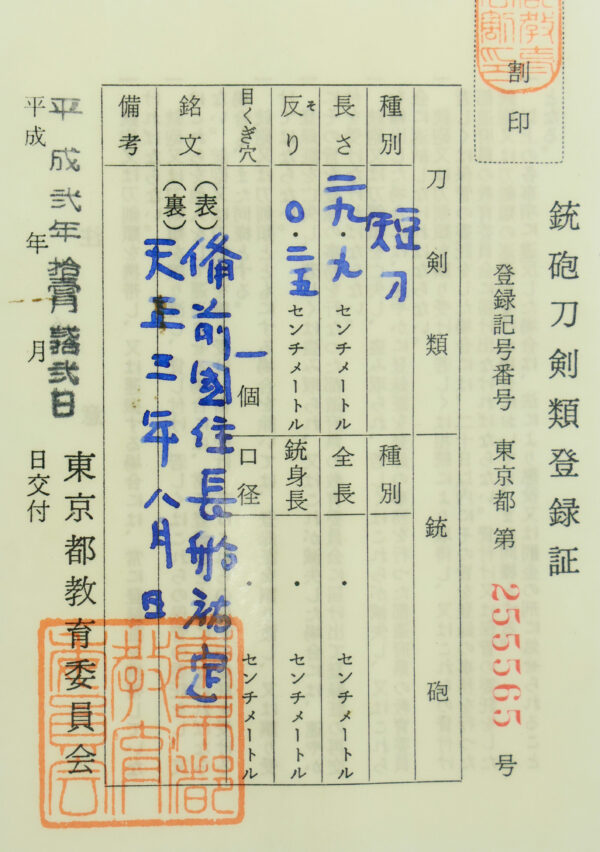 割印
銃砲刀剣類登録証
登録記号番号 東京都 第 255565 号
刀剣類 銃砲
種別 短刀 種別
長さ 二九・九 センチメートル 全長 ・ センチメートル
反り そ 〇・二五 センチメートル 銃身長 ・ センチメートル
目くぎ穴 一個 口径 ・ センチメートル
銘文 (表) 備前國住長船祐定
(裏) 天正三年八月日
備考
平成弐年拾壹月 弐日
平成 年 月 日交付
東京都教育委員会
東京都教育委員会